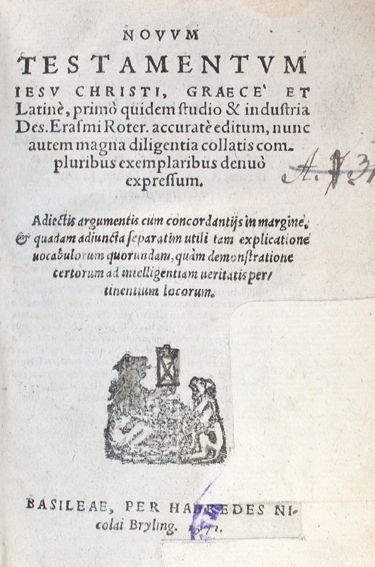 NOVVM
TESTAMENTVM
IESV CHRISTI, GRAECE' ET
Latinè, primò quidem studio & industria
Des. Erasmi Roter. accuratè editum, nunc
autem magna diligentia collatis com-
pluribus exemplaribus denuò
expressum.
Adiectis argumentis cum concordantijs in margine,
& quadam adiuncta separatim utili tam explicatione
uocabulorum quorundam, quàm demonstratione
certorum ad intelligentiam ueritatis per/
tinentium locorum.
BASILEAE, PER HAEREDES NI-
colai Bryling. 1571.